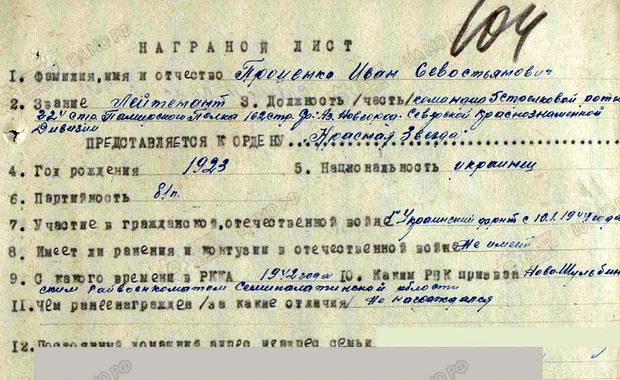 104
НАГРАНОЙ ЛИСТ
1. Фамилия, имя и отчество Проценко Иван Севостьянович
2. Звание Лейтенант 3. Должность /часть/ командир 5 стрелковой роты
224 стр. Памирского полка 162 стр. Новгород-Северской Краснознаменной
Дивизии
ПРЕДСТАВЛЯЕТСЯ К ОРДЕНУ... Красная Звезда
4. Год рождения 1923 5. Национальность украинец
6. Партийность б/п.
7. Участие в гражданской, отечественной войне Украинский фронт с 10.1.1944 года
8. Имеет ли ранения и контузии в отечественной войне Не имеет
9. С какого времени в РККА 1942 года 10. Каким РВК призван Ново-Шульбин
ским Райвоенкоматом Семипалатинской области
11. Чем ранее награжден /за какие отличия/ Не награждался
12. Постоянный домашний адрес семьи